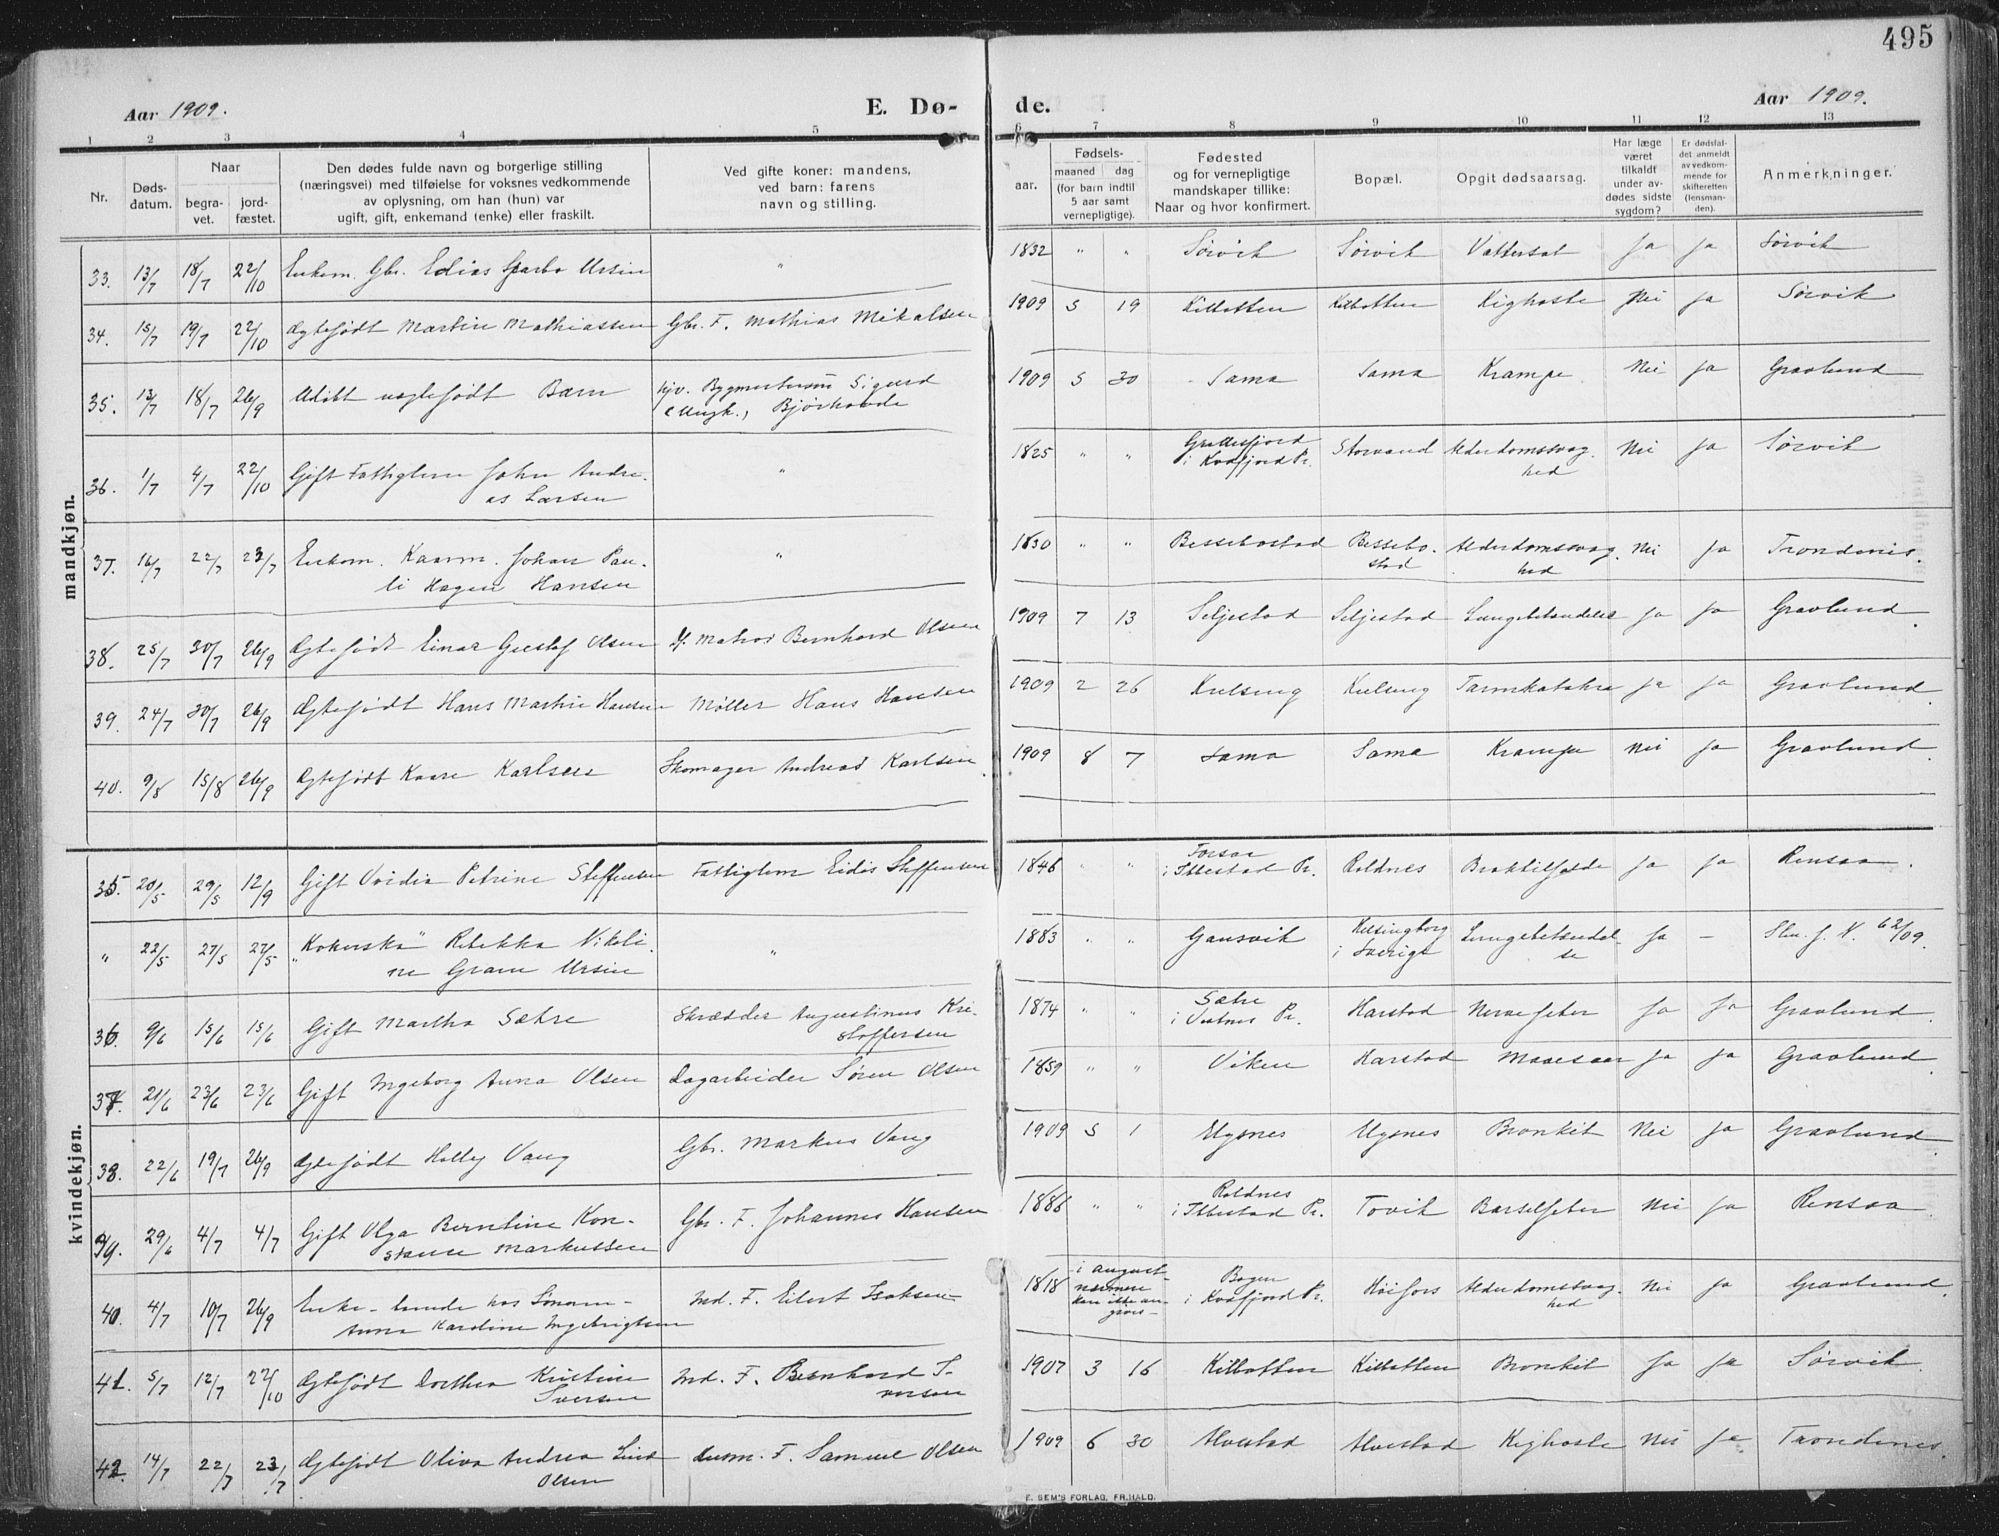 495
Aar 1909.
E. Dø-
de.
Aar 1909.
1 2 3 4 5 6 7 8 9 10 11 12 13
Nr.
Døds-
datum.
Naar
begra-
vet.
jord-
fæstet.
Den dødes fulde navn og borgerlige stilling
(næringsvei) med tilføielse for voksnes vedkommende
av oplysning, om han (hun) var
ugift, gift, enkemand (enke) eller fraskilt.
Ved gifte koner: mandens,
ved barn: farens
navn og stilling.
Fødsels-
aar.
maaned dag
(for barn indtil
5 aar samt
vernepligtige).
Fødested
og for vernepligtige
mandskaper tillike:
Naar og hvor konfirmert.
Bopæl.
Opgit dødsaarsag.
Har læge
været
tilkaldt
under av-
dødes sidste
sygdom?
Er dødsfal-
det anmeldt
av vedkom-
mende for
skifteretten
(lensman-
den).
Anmerkninger.
mandkjøn.
33. 13/7 18/7 22/10 Enkem. Gbr. Edias Sparbo Ursin " 1832 " " Sørvik Sørvik Vattersot Ja Ja Sørvik
34. 15/7 19/7 22/10 Ægtefødt Martin Mathiassen Gbr. F. Mathias Mikalsen 1909 5 19 Kilbotten Kilbotten Kighoste Nei Ja Sørvik
35. 13/7 18/7 26/9 Udøbt uægtefødt Barn Sigurd
Bjørhovde 1909 5 30 Sama Sama Krampe Nei Ja Gravlund
36. 1/7 4/7 22/10 Gift Fattiglem John Andre-
as Larsen " 1825 " " i Kvæfjord Pr. Storvand Alderdomssvag-
hed Nei Ja Sørvik
37. 16/7 22/7 23/7 Enkem. Kaarm. Johan Pau-
li Hagen Hansen " 1830 " " Bessebostad Bessebo-
stad Alderdomssvag-
hed Nei Ja Trondenes.
38. 25/7 30/7 26/9 Ægtefødt Einar Gustaf Olsen Matros Bernhard Olsen 1909 7 13 Seljestad Seljestad Lungebetændelse Ja Ja Gravlund.
39. 24/7 30/7 26/9 Ægtefødt Hans Martin Hansen Møller Hans Hansen 1909 2 26 Kulseng Kulseng Tarmkatarh Ja Ja Gravlund.
40. 9/8 15/8 26/9 Ægtefødt Kaare Karlsen Skomager Andreas Karlsen. 1909 8 7 Sama Sama Krampe Nei Ja Gravlund.
kvindekjøn.
35. 20/5 29/5 12/9 Gift Vvidia Petrine Steffensen Fattiglem Eidis Steffensen 1846 " " i Ibbestad Pr. Roldnes Brøktilfælde Ja Ja Rensaa.
" 22/5 27/5 27/5 "Kokerska" Rebekka Nikoli-
ne Gram Ursin " 1883 " " Gansvik Helsingborg
i Sverige Lungebetændel-
se Ja - f. N. 62/09.
36. 9/6 15/6 15/6 Gift Martha Sætre Skrædder Augustinus Kri-
stoffersen 1874 " " Sætre
i Vestnes Pr. Harstad Nervefeber Ja Ja Gravlund.
37. 21/6 23/6 23/6 Gift Ingeborg Anna Olsen Dagarbeider Søren Olsen 1859 " " Viken Harstad Mavesaar Ja Ja Gravlund.
38. 22/6 19/7 26/9 Ægtefødt Helly Vang Gbr. Markus Vang 1909 5 1 Elgsnes Elgsnes Bronkit Nei Ja Gravlund.
39. 29/6 4/7 4/7 Gift Olga Berntine Kon-
stanse Markussen Gbr. F. Johannes Hansen 1886 " " Roldnes
i Ibbestad Pr. Tovik Barselfeber Nei Ja Rensaa
40. 4/7 10/7 26/9 Enke - boende hos Sønnen -
Anna Karoline Ingebrigtsen Ind. F. Eilert Isaksen 1818 i august -
nærmere
kan ikke an-
gives - Bogen
i Kvæfjord Pr. Høifors Alderdomssvag-
hed Nei Ja Gravlund.
41. 5/7 12/7 22/10 Ægtefødt Dorthea Kristine
Iversen Ind. F. Bernhard I-
versen 1907 3 16 Kilbotten Kilbotten Bronkit Ja Ja Sørvik.
42. 14/7 22/7 23/7 Ægtefødt Oliva Andrea Lind
Olsen Husm. F. Samuel Olsen 1909 6 30 Alvestad Alvestad Kighoste Nei Ja Trondenes.
E. SEM'S FORLAG, FR.HALD.